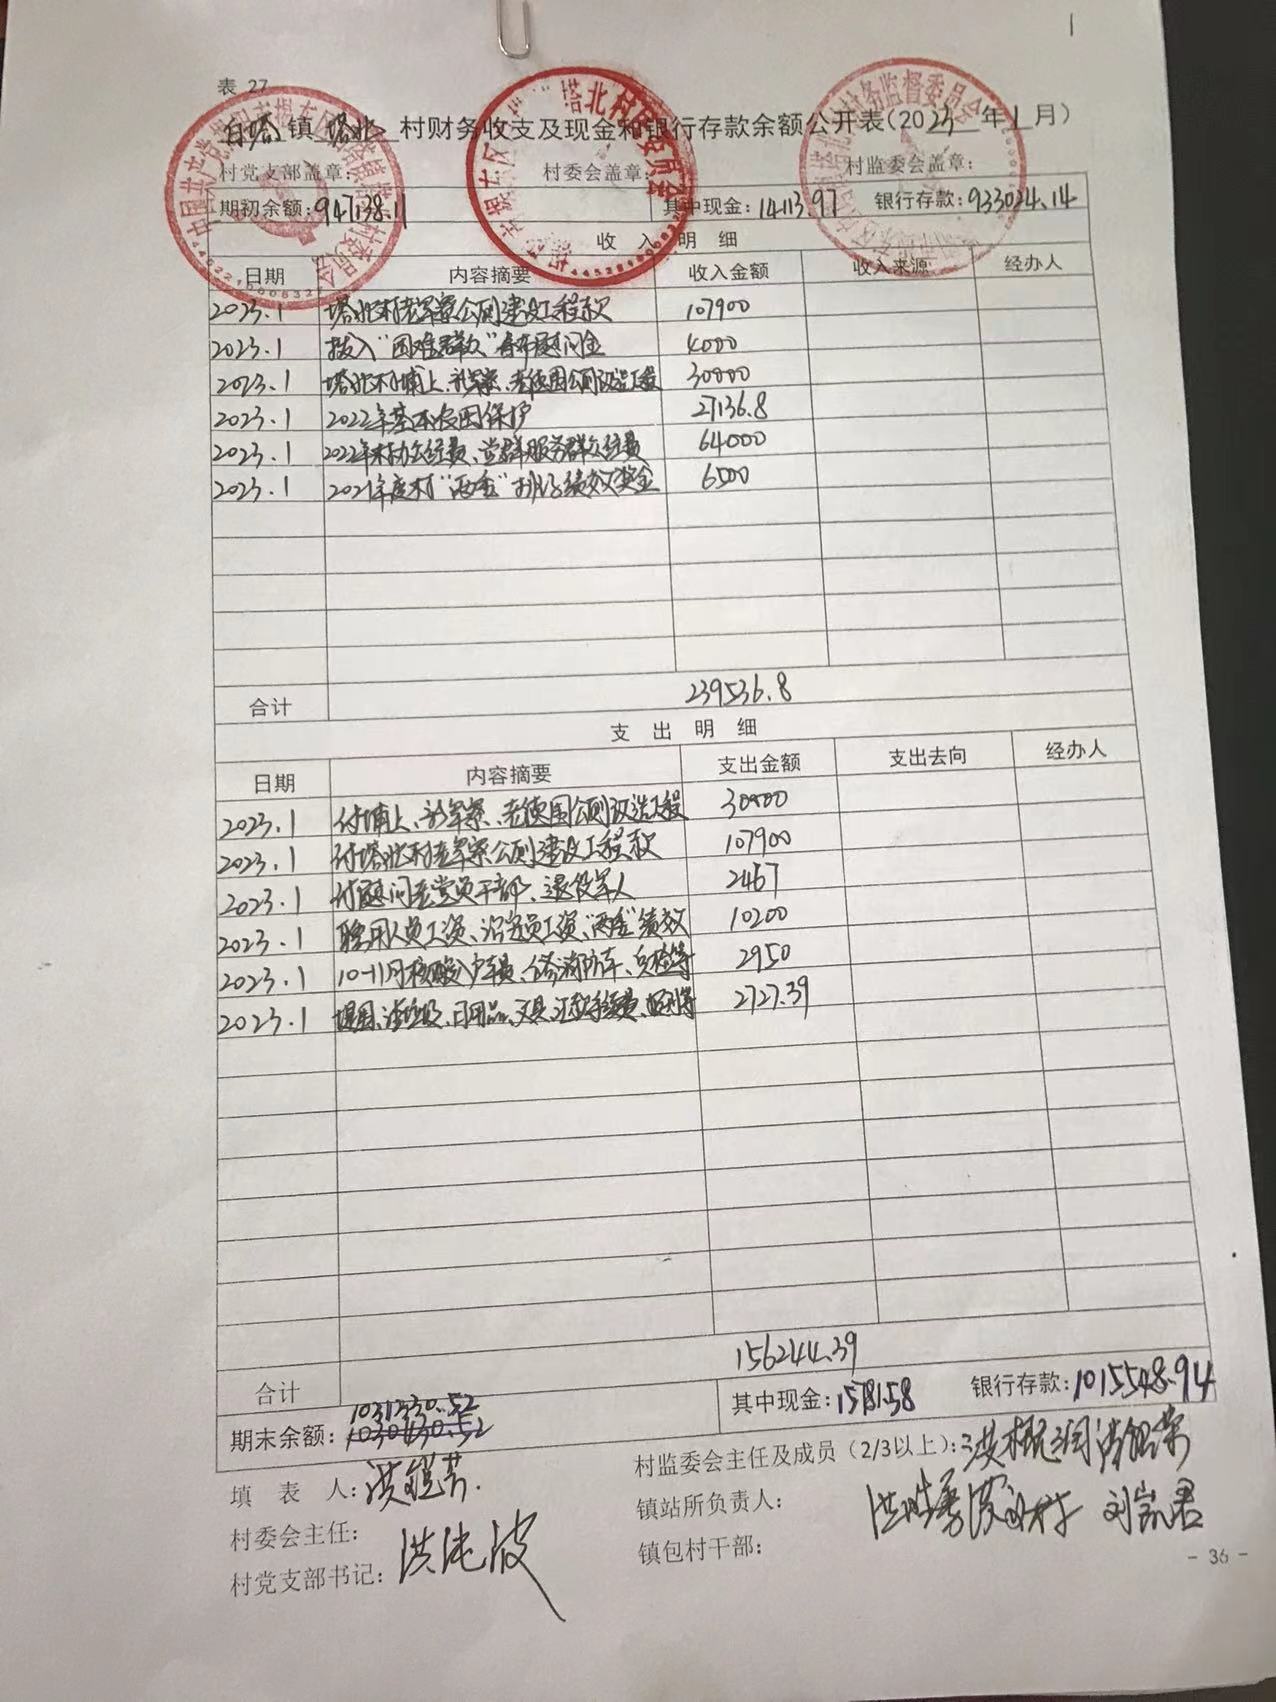 表 27
白塔镇 塔北 村财务收支及现金和银行存款余额公开表(2023年1月)
村党支部盖章: 村委会盖章: 村监委会盖章:
期初余额:947138.11 其中现金:14113.97 银行存款:933024.14
收入明细
日期 内容摘要 收入金额 收入来源 经办人
2023.1 塔北村老军寮公厕建设工程款 107900
2023.1 拨入"困难群众"春节慰问金 4000
2023.1 塔北村埔上、新军寮、老德围公厕改造工程 30000
2023.1 2022年基本农田保护 27136.8
2023.1 2022年村办公经费、党群服务群众经费 64000
2023.1 2021年度村"两委"绩效奖金 6500
合计 239536.8
支出明细
日期 内容摘要 支出金额 支出去向 经办人
2023.1 付埔上、新军寮、老德围公厕改造工程 30000
2023.1 付塔北村老军寮公厕建设工程款 107900
2023.1 付慰问老党员干部、退役军人 2467
2023.1 聘用人员工资、"两委"绩效 10200
2023.1 10-11月核酸入户车费、消防车、等 2950
2023.1 日用品、文具、汇款手续费、等 2727.39
合计 156244.39
1031330.52
期末余额:1030430.52 其中现金:15781.58 银行存款:1015548.94
填表人: 洪
村监委会主任及成员(2/3以上):洪
村委会主任:
镇站所负责人: 刘凯君
村党支部书记: 洪
镇包村干部:
- 36 -